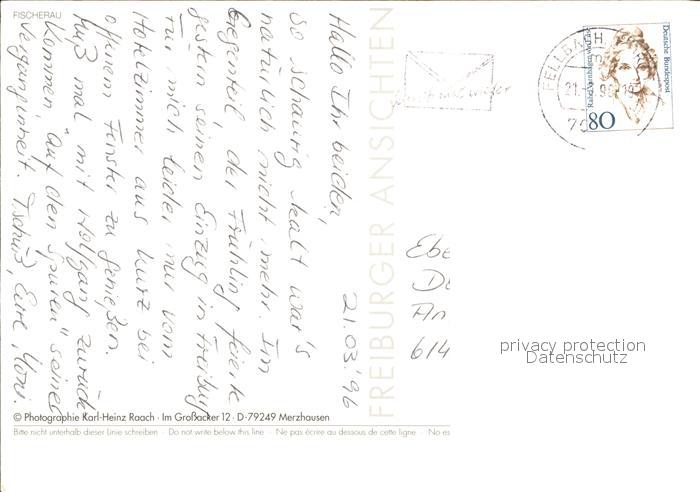 FISCHERAU
21.03.'96
Hallo Ihr beiden,
so schaurig kalt war's
natürlich nicht mehr. Im
Gegenteil der Frühling feierte
gestern seinen Einzug in Freiburg
Für mich leider nur vom
Hotelzimmer aus kurz bei
offenem Fenster zu genießen.
Muß mal mit Wolfgang zurück
kommen, "auf den Spuren" seiner
Vergangenheit. Tschüß, Eure Moni.
FREIBURGER ANSICHTEN
FELLBACH
21
19
70
Deutsche Bundespost
80
Ebe
An
614
privacy protection
Datenschutz
© Photographie Karl-Heinz Raach · Im Großacker 12 · D-79249 Merzhausen
Bitte nicht unterhalb dieser Linie schreiben · Do not write below this line · Ne pas écrire au dessous de cette ligne · No es